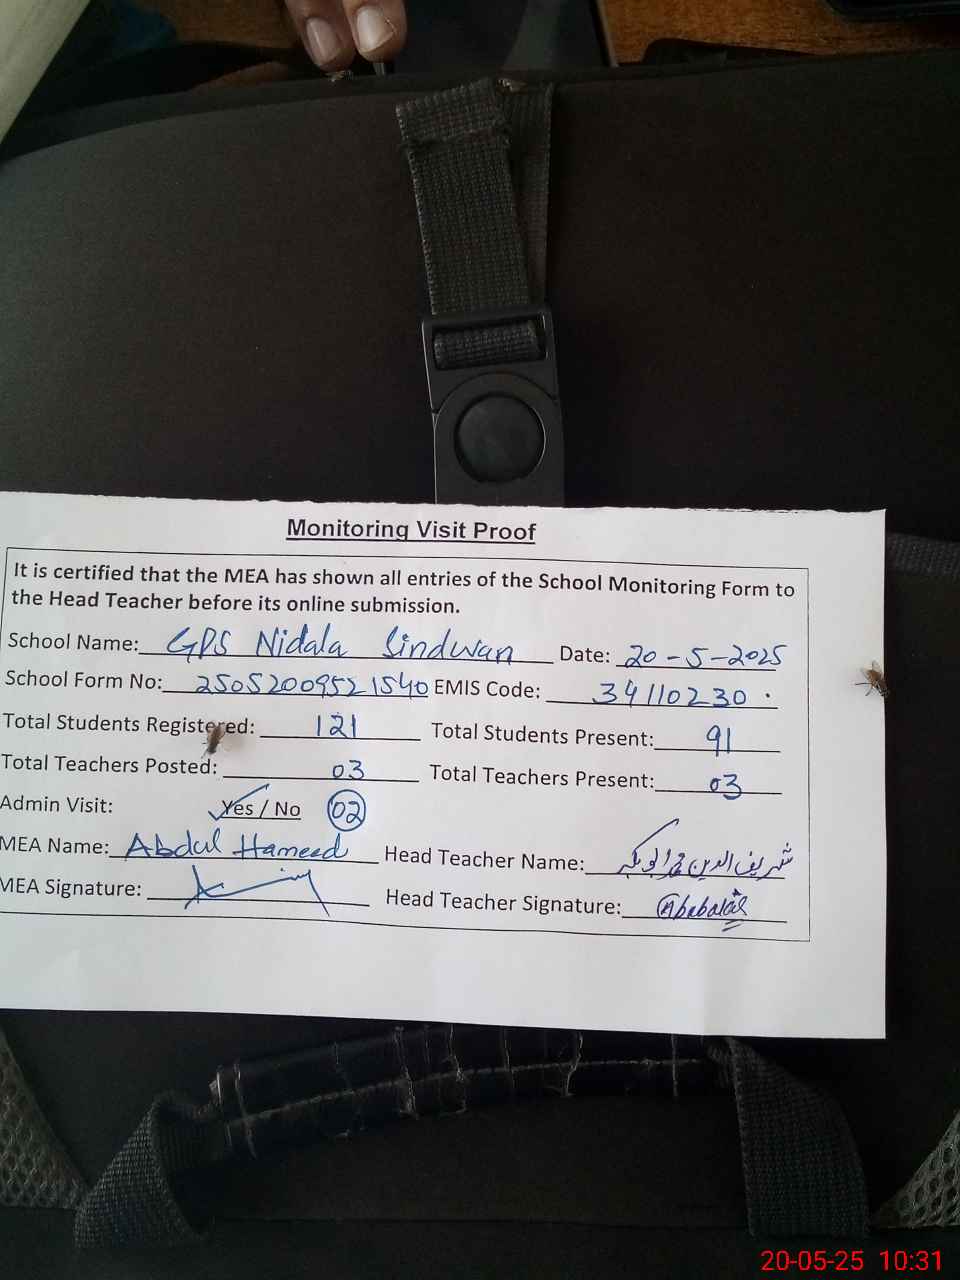 Monitoring Visit Proof
It is certified that the MEA has shown all entries of the School Monitoring Form to
the Head Teacher before its online submission.
School Name: GPS Nidala Sindwan Date: 20-5-2025
School Form No: 25052009521540 EMIS Code: 34110230
Total Students Registered: 121 Total Students Present: 91
Total Teachers Posted: 03 Total Teachers Present: 03
Admin Visit: Yes / No 02
MEA Name: Abdul Hameed Head Teacher Name: شریف الدین
MEA Signature: Head Teacher Signature:
20-05-25 10:31